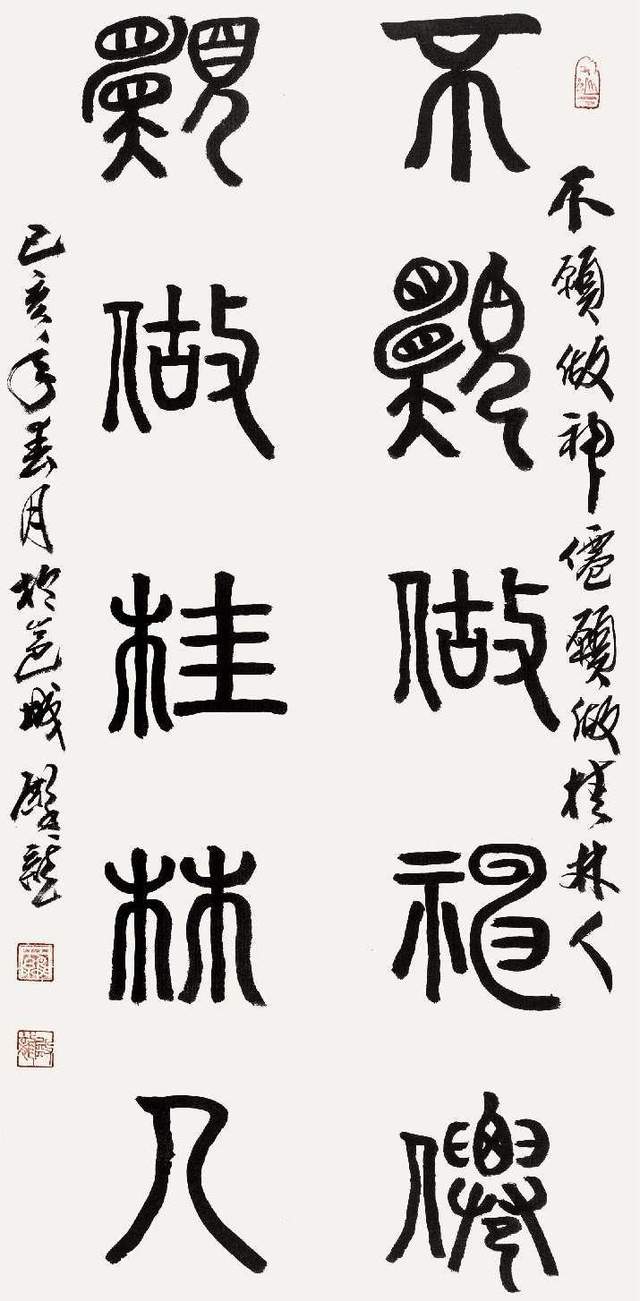 不願做神僊願做桂林人
不願做神僊
願做桂林人
己亥年春月於邕城殿龍